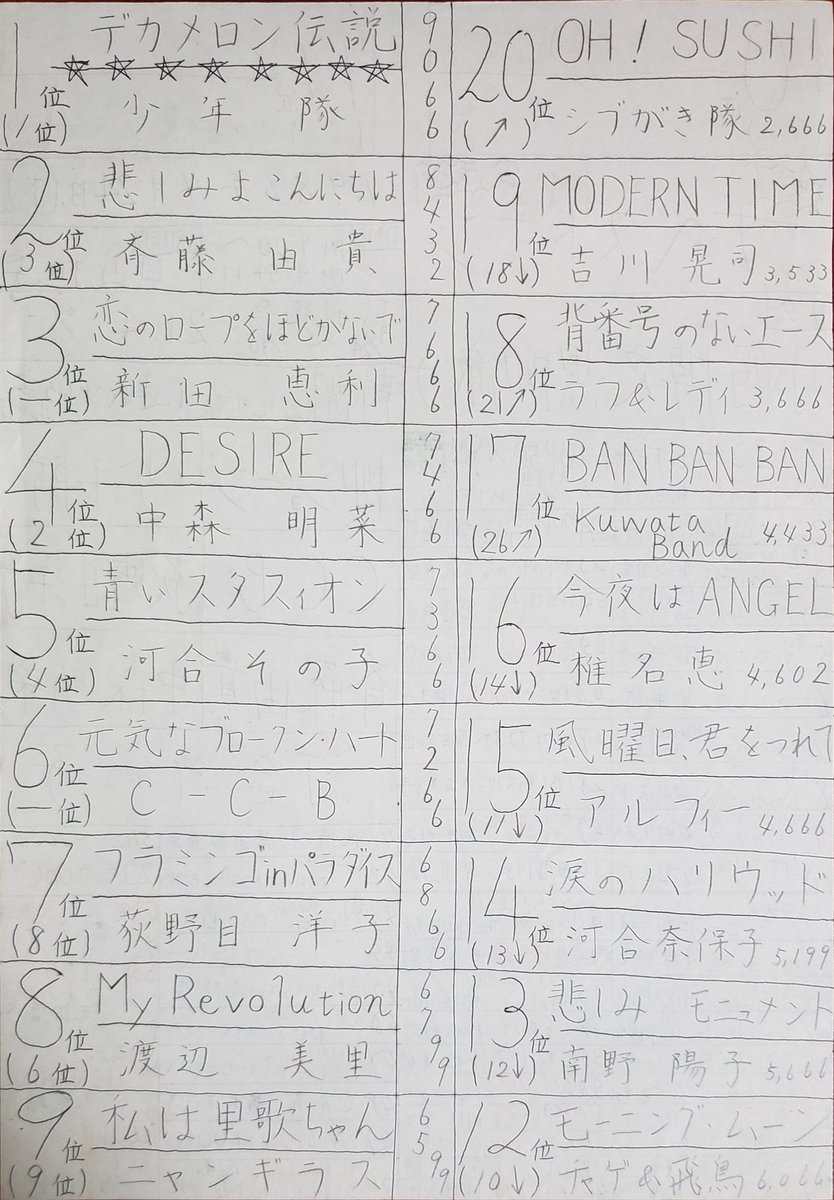 デカメロン伝説
☆☆☆☆☆☆☆☆
1位
(1位)
少年隊
9066
悲しみよこんにちは
2位
(3位)
斉藤由貴
8432
恋のロープをほどかないで
3位
(—位)
新田恵利
7666
DESIRE
4位
(2位)
中森明菜
7466
青いスタスィオン
5位
(4位)
河合その子
7366
元気なブロークン・ハート
6位
(—位)
C-C-B
7266
フラミンゴinパラダイス
7位
(8位)
荻野目洋子
6866
My Revolution
8位
(6位)
渡辺美里
6799
私は里歌ちゃん
9位
(9位)
ニャンギラス
6599
OH! SUSHI
20位
(↗)
シブがき隊 2,666
MODERN TIME
19位
(18↓)
吉川晃司 3,533
背番号のないエース
18位
(21↗)
ラフ&レディ 3,666
BAN BAN BAN
17位
(26↗)
Kuwata
Band 4,433
今夜はANGEL
16位
(14↓)
椎名恵 4,602
風曜日、君をつれて
15位
(11↓)
アルフィー 4,666
涙のハリウッド
14位
(13↓)
河合奈保子 5,199
悲しみモニュメント
13位
(12↓)
南野陽子 5,666
モーニング・ムーン
12位
(10↓)
チャゲ&飛鳥 6,066